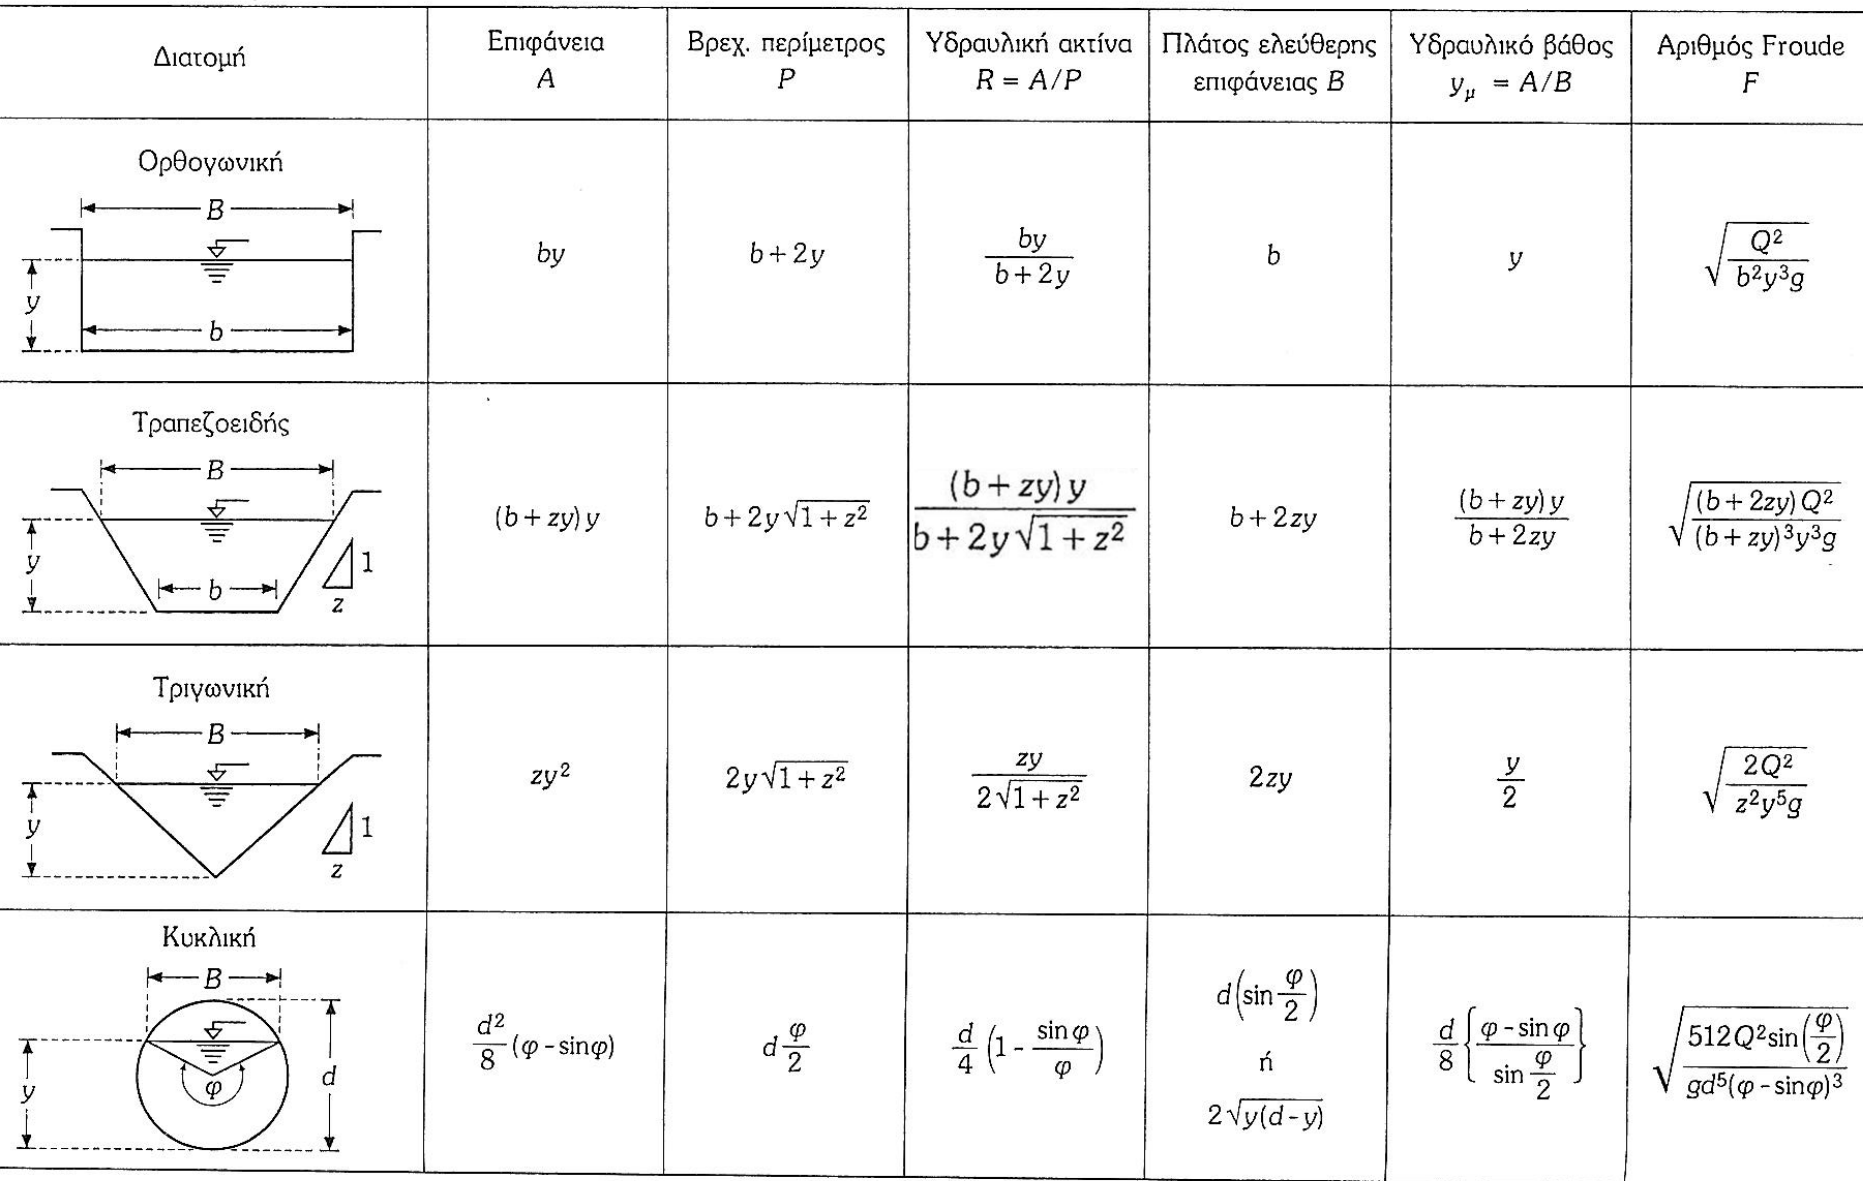 Διατομή
Επιφάνεια
A
Βρεχ. περίμετρος
P
Υδραυλική ακτίνα
R = A/P
Πλάτος ελεύθερης
επιφάνειας B
Υδραυλικό βάθος
y_μ = A/B
Αριθμός Froude
F
Ορθογωνική
B
y
b
by
b + 2y
by / (b + 2y)
b
y
√(Q² / (b²y³g))
Τραπεζοειδής
B
y
b
1
z
(b + zy) y
b + 2y√(1 + z²)
(b + zy) y / (b + 2y√(1 + z²))
b + 2zy
(b + zy) y / (b + 2zy)
√((b + 2zy) Q² / ((b + zy)³y³g))
Τριγωνική
B
y
1
z
zy²
2y√(1 + z²)
zy / (2√(1 + z²))
2zy
y / 2
√(2Q² / (z²y⁵g))
Κυκλική
B
y
φ
d
d²/8 (φ - sinφ)
d φ/2
d/4 (1 - sinφ/φ)
d(sin φ/2)
ή
2√(y(d - y))
d/8 {(φ - sinφ) / sin φ/2}
√(512Q²sin(φ/2) / (gd⁵(φ - sinφ)³))